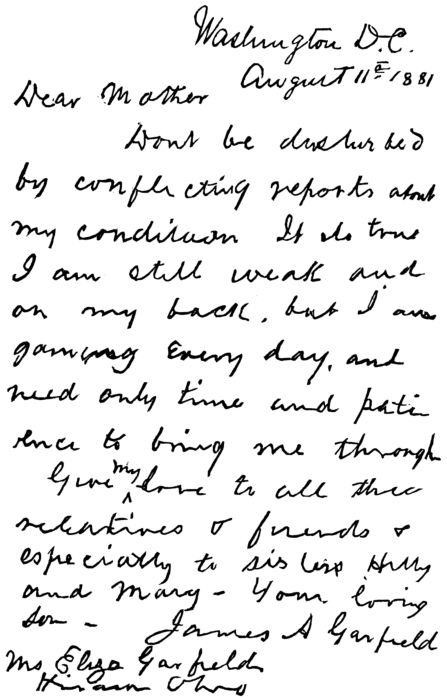 Washington D.C.
August 11th 1881
Dear Mother
Dont be disturbed
by conflicting reports about
my condition It is true
I am still weak and
on my back, but I am
gaining every day, and
need only time and pati
ence to bring me through
Give my love to all the
relatives & friends &
especially to sisters Hitty
and Mary - Your loving
son - James A Garfield
Mrs Eliza Garfield
Hiram Ohio